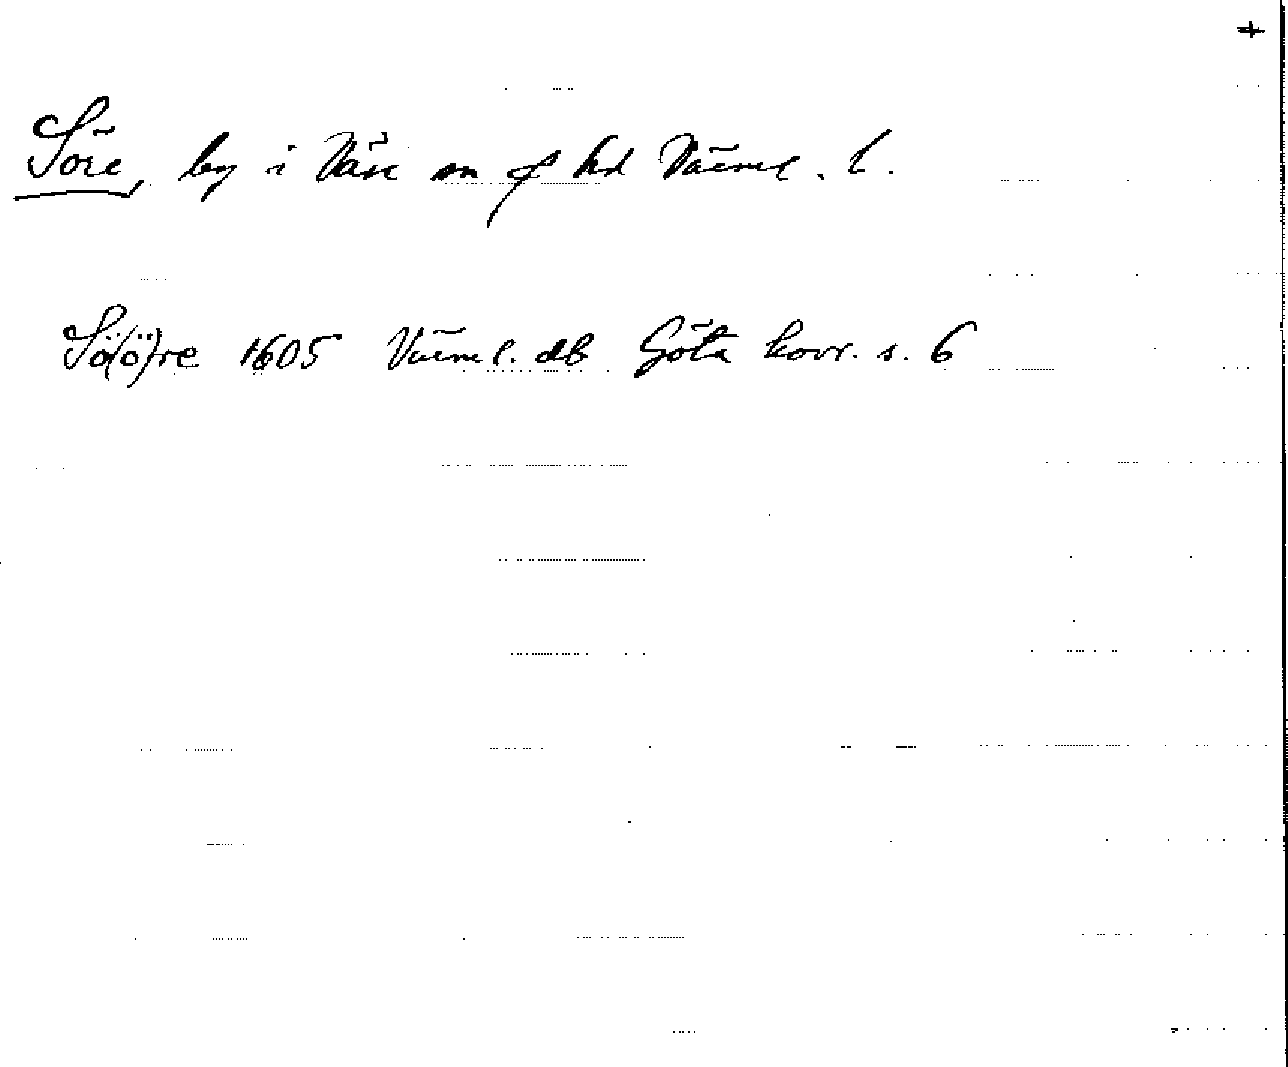 +
Söre, by i Väse sn o hd Värml. l.
Sö(ö)re 1605 Värml. db Göta hovr. s. 6